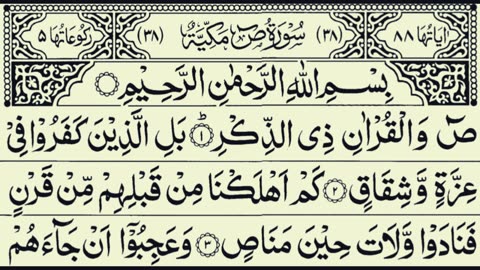 اٰیَاتُهَا ٨٨ (٣٨) سُوْرَةُ صٓ مَكِّیَّةٌ (٣٨) رُكُوْعَاتُهَا ٥
بِسْمِ اللّٰهِ الرَّحْمٰنِ الرَّحِیْمِ
صٓ وَالْقُرْاٰنِ ذِی الذِّكْرِ ؕ﴿١﴾ بَلِ الَّذِیْنَ كَفَرُوْا فِیْ
عِزَّةٍ وَّشِقَاقٍ ﴿٢﴾ كَمْ اَهْلَكْنَا مِنْ قَبْلِهِمْ مِّنْ قَرْنٍ
فَنَادَوْا وَّلَاتَ حِیْنَ مَنَاصٍ ﴿٣﴾ وَعَجِبُوْۤا اَنْ جَآءَهُمْ